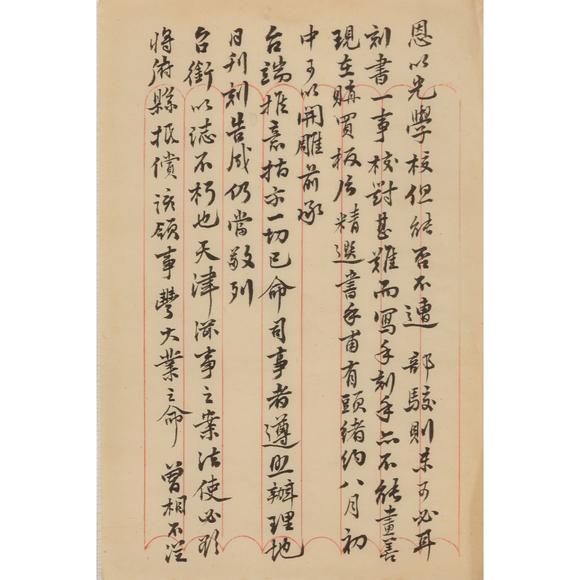 恩以光學校但能否不遭部駁則未可必耳
刻書一事校對甚難而寫手刻手亦不能盡善
現在購買板片精選書手甫有頭緒約八月初
中可以開雕前承
台端推意指示一切已命司事者遵照辦理地
日刊刻告成仍當敬列
台銜以誌不朽也天津滋事之案法使必欲
將府縣抵償該領事豐大業之命曾相不從